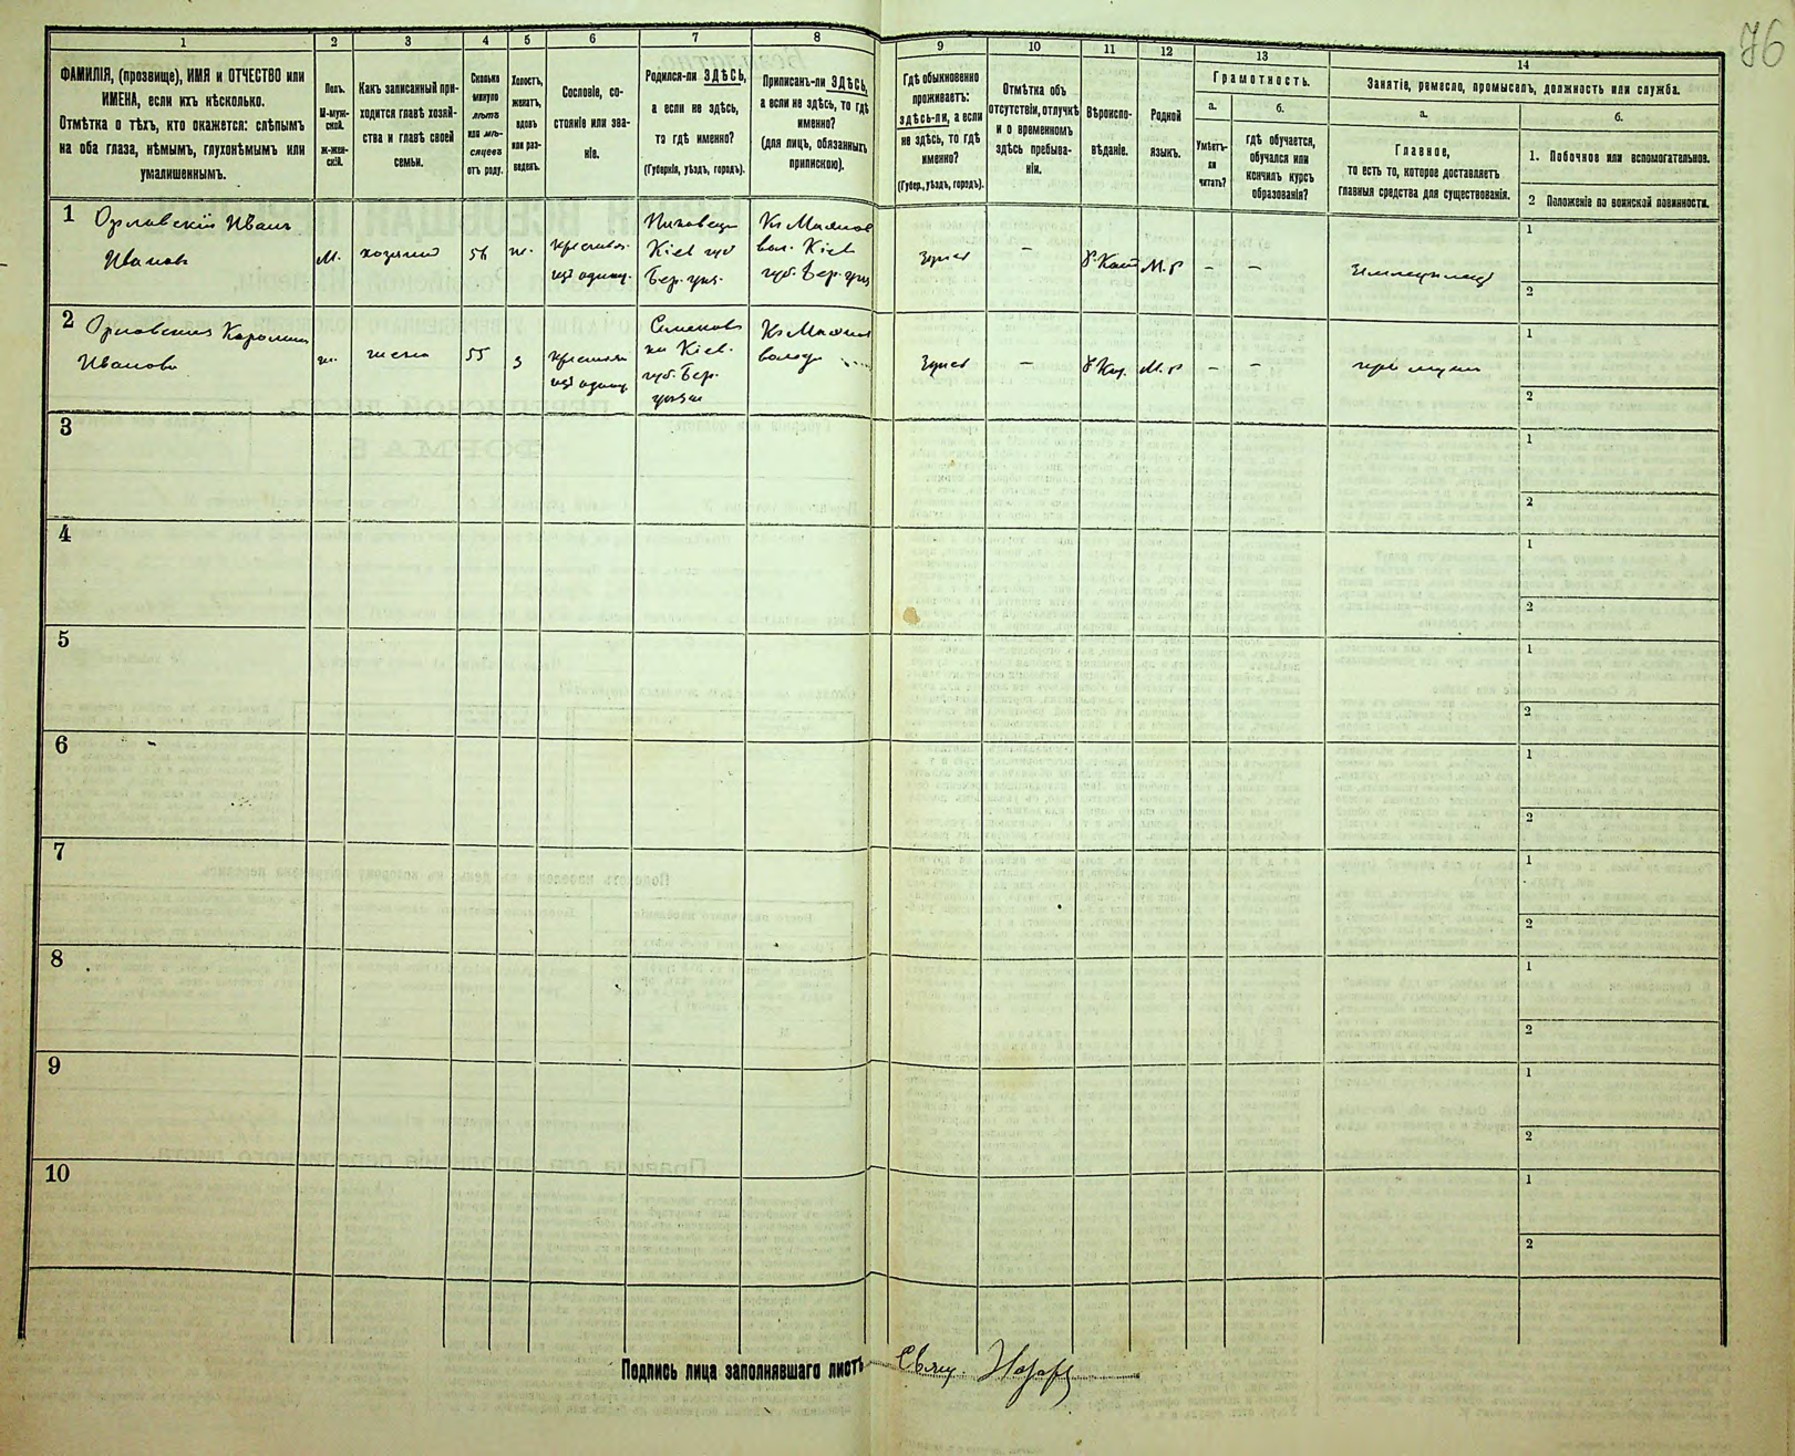 76
1 2 3 4 5 6 7 8 9 10 11 12 13 14
ФАМИЛІЯ, (прозвище), ИМЯ и ОТЧЕСТВО или
ИМЕНА, если ихъ нѣсколько.
Отмѣтка о тѣхъ, кто окажется: слѣпымъ
на оба глаза, нѣмымъ, глухонѣмымъ или
умалишеннымъ.
Полъ.
М-муж-
ской.
Ж-жен-
скій.
Какъ записанный при-
ходится главѣ хозяй-
ства и главѣ своей
семьи.
Сколько
минуло
лѣтъ
или мѣ-
сяцевъ
отъ роду.
Холостъ,
женатъ,
вдовъ
или раз-
веденъ.
Сословіе, со-
стояніе или зва-
ніе.
Родился-ли ЗДѢСЬ,
а если не здѣсь,
то гдѣ именно?
(Губернія, уѣздъ, городъ).
Приписанъ-ли ЗДѢСЬ,
а если не здѣсь, то гдѣ
именно?
(для лицъ, обязанныхъ
припискою).
Гдѣ обыкновенно
проживаетъ:
здѣсь-ли, а если
не здѣсь, то гдѣ
именно?
(Губер., уѣздъ, городъ).
Отмѣтка объ
отсутствіи, отлучкѣ
и о временномъ
здѣсь пребыва-
ніи.
Вѣроиспо-
вѣданіе.
Родной
языкъ.
Грамотность.
а.
Умѣетъ-
ли
читать?
б.
гдѣ обучается,
обучался или
кончилъ курсъ
образованія?
Занятіе, ремесло, промыселъ, должность или служба.
а.
Главное,
то есть то, которое доставляетъ
главныя средства для существованія.
б.
1. Побочное или вспомогательное.
2 Положеніе по воинской повинности.
1 Орловскій Иванъ
Ивановъ
М.
хозяинъ
56
ж.
Кіев губ
Бер. уѣз.
вол. Кіев
губ. Бер. уѣз
–
Р. Кат
М. Р
– –
1
2
2 Орловская Каролина
Иванова
ж.
жена
55
з
Кіев.
губ. Бер.
уѣзда
–
Р. Кат.
М. Р
– –
при мужѣ
1
2
3
1
2
4
1
2
5
1
2
6
1
2
7
1
2
8
1
2
9
1
2
10
1
2
Подпись лица заполнявшаго листъ